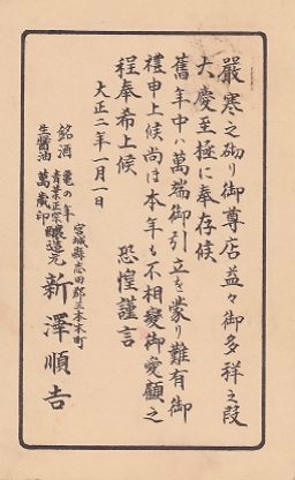 嚴寒之砌り御尊店益々御多祥之段
大慶至極に奉存候
舊年中ハ萬端御引立を蒙り難有御
禮申上候尚は本年も不相變御愛顧之
程奉希上候　恐惶謹言
大正二年一月一日
宮城縣志田郡三本木町
銘酒 亀の年
青葉正宗
生醤油 萬歳印
釀造元 新澤順吉